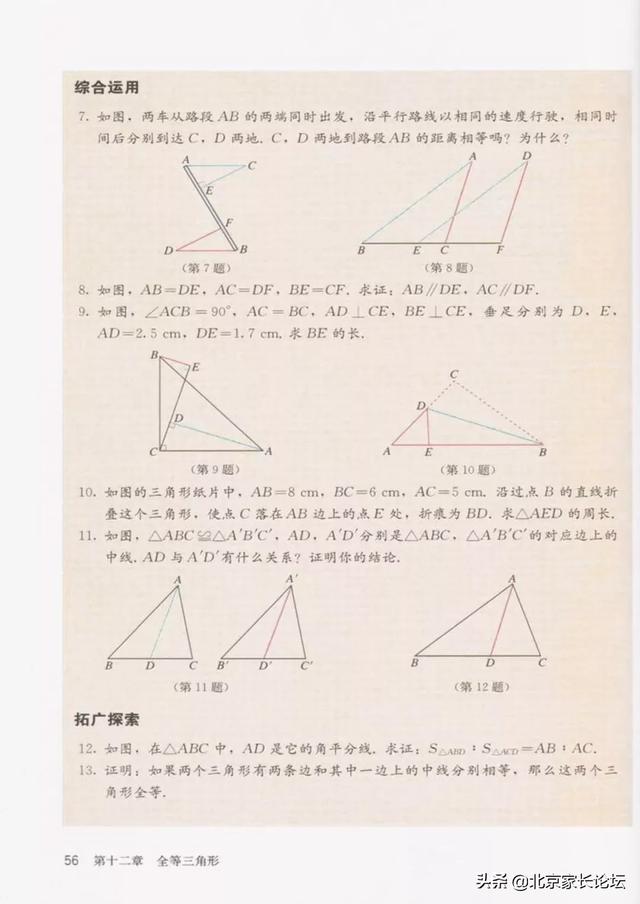 综合运用
7. 如图，两车从路段 AB 的两端同时出发，沿平行路线以相同的速度行驶，相同时
间后分别到达 C，D 两地. C，D 两地到路段 AB 的距离相等吗？为什么？
A C
E
F
D B
（第 7 题）
A D
B E C F
（第 8 题）
8. 如图，AB=DE，AC=DF，BE=CF. 求证：AB∥DE，AC∥DF.
9. 如图，∠ACB=90°，AC=BC，AD⊥CE，BE⊥CE，垂足分别为 D，E，
AD=2.5 cm，DE=1.7 cm. 求 BE 的长.
B
E
D
C A
（第 9 题）
C
D
A E B
（第 10 题）
10. 如图的三角形纸片中，AB=8 cm，BC=6 cm，AC=5 cm. 沿过点 B 的直线折
叠这个三角形，使点 C 落在 AB 边上的点 E 处，折痕为 BD. 求△AED 的周长.
11. 如图，△ABC≌△A′B′C′，AD，A′D′分别是△ABC，△A′B′C′的对应边上的
中线. AD 与 A′D′有什么关系？证明你的结论.
A A′
B D C B′ D′ C′
（第 11 题）
A
B D C
（第 12 题）
拓广探索
12. 如图，在△ABC 中，AD 是它的角平分线. 求证：S△ABD∶S△ACD=AB∶AC.
13. 证明：如果两个三角形有两条边和其中一边上的中线分别相等，那么这两个三
角形全等.
56 第十二章 全等三角形
头条 @北京家长论坛